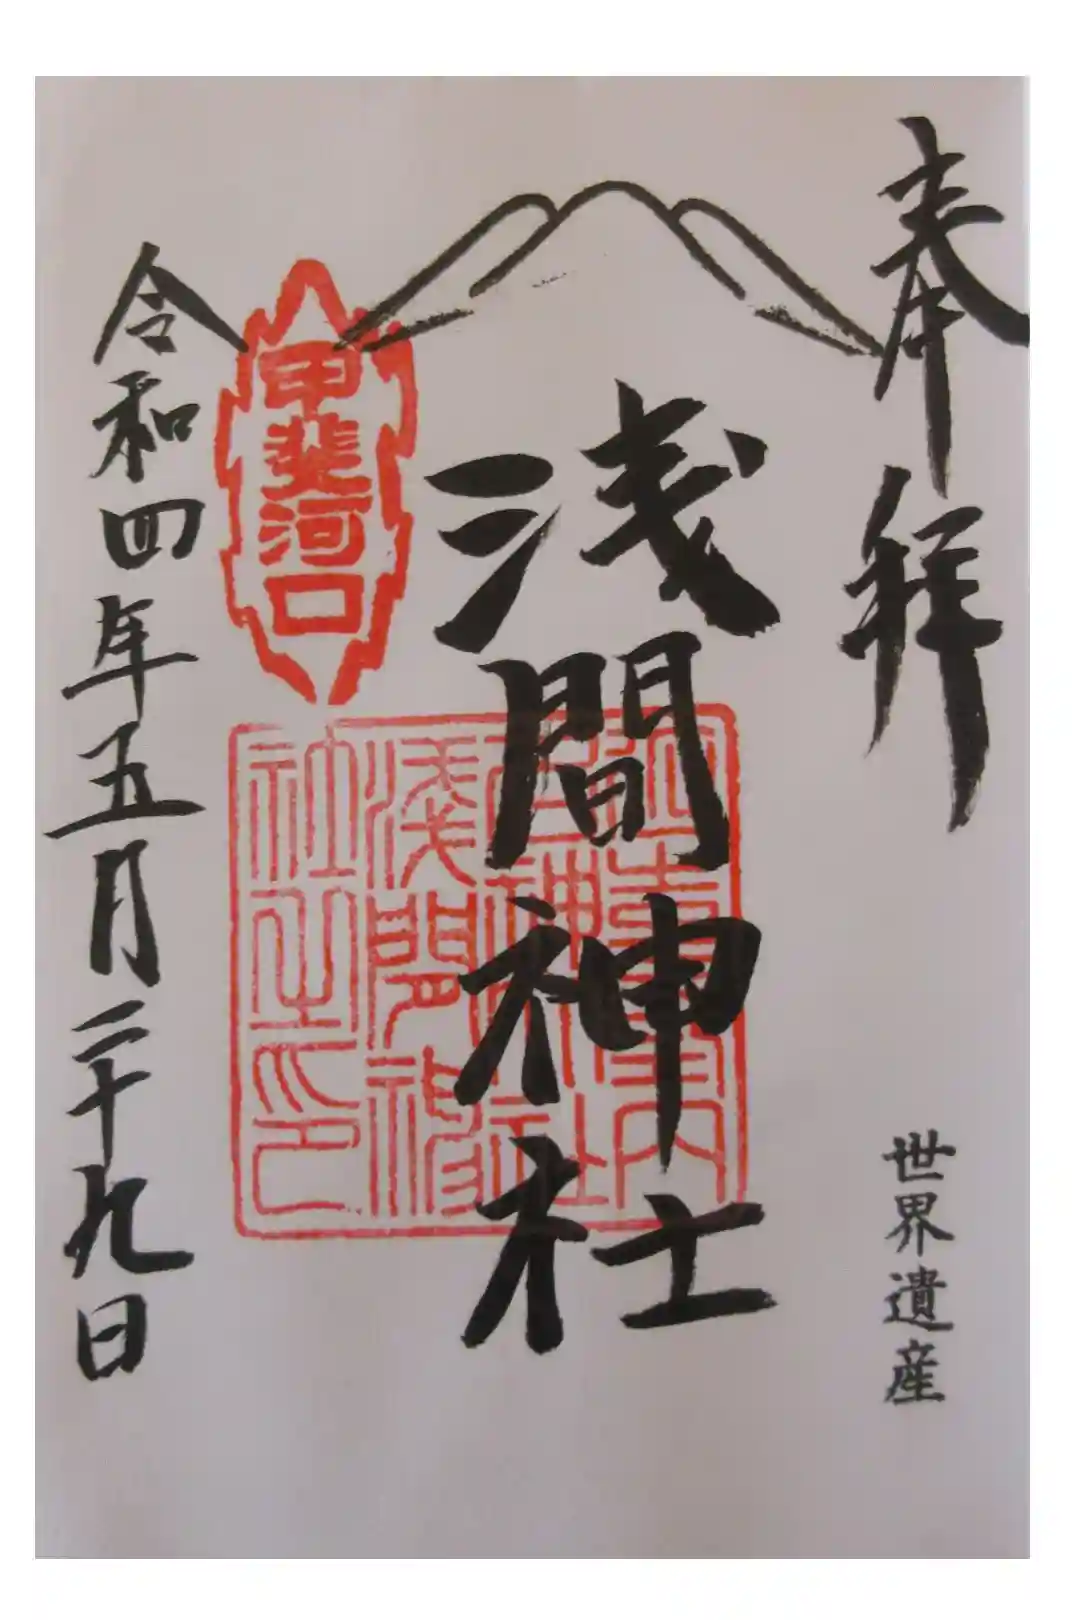 奉拝
世界遺産
浅間神社
甲斐河口
淺間神
社之印
令和四年五月二十九日